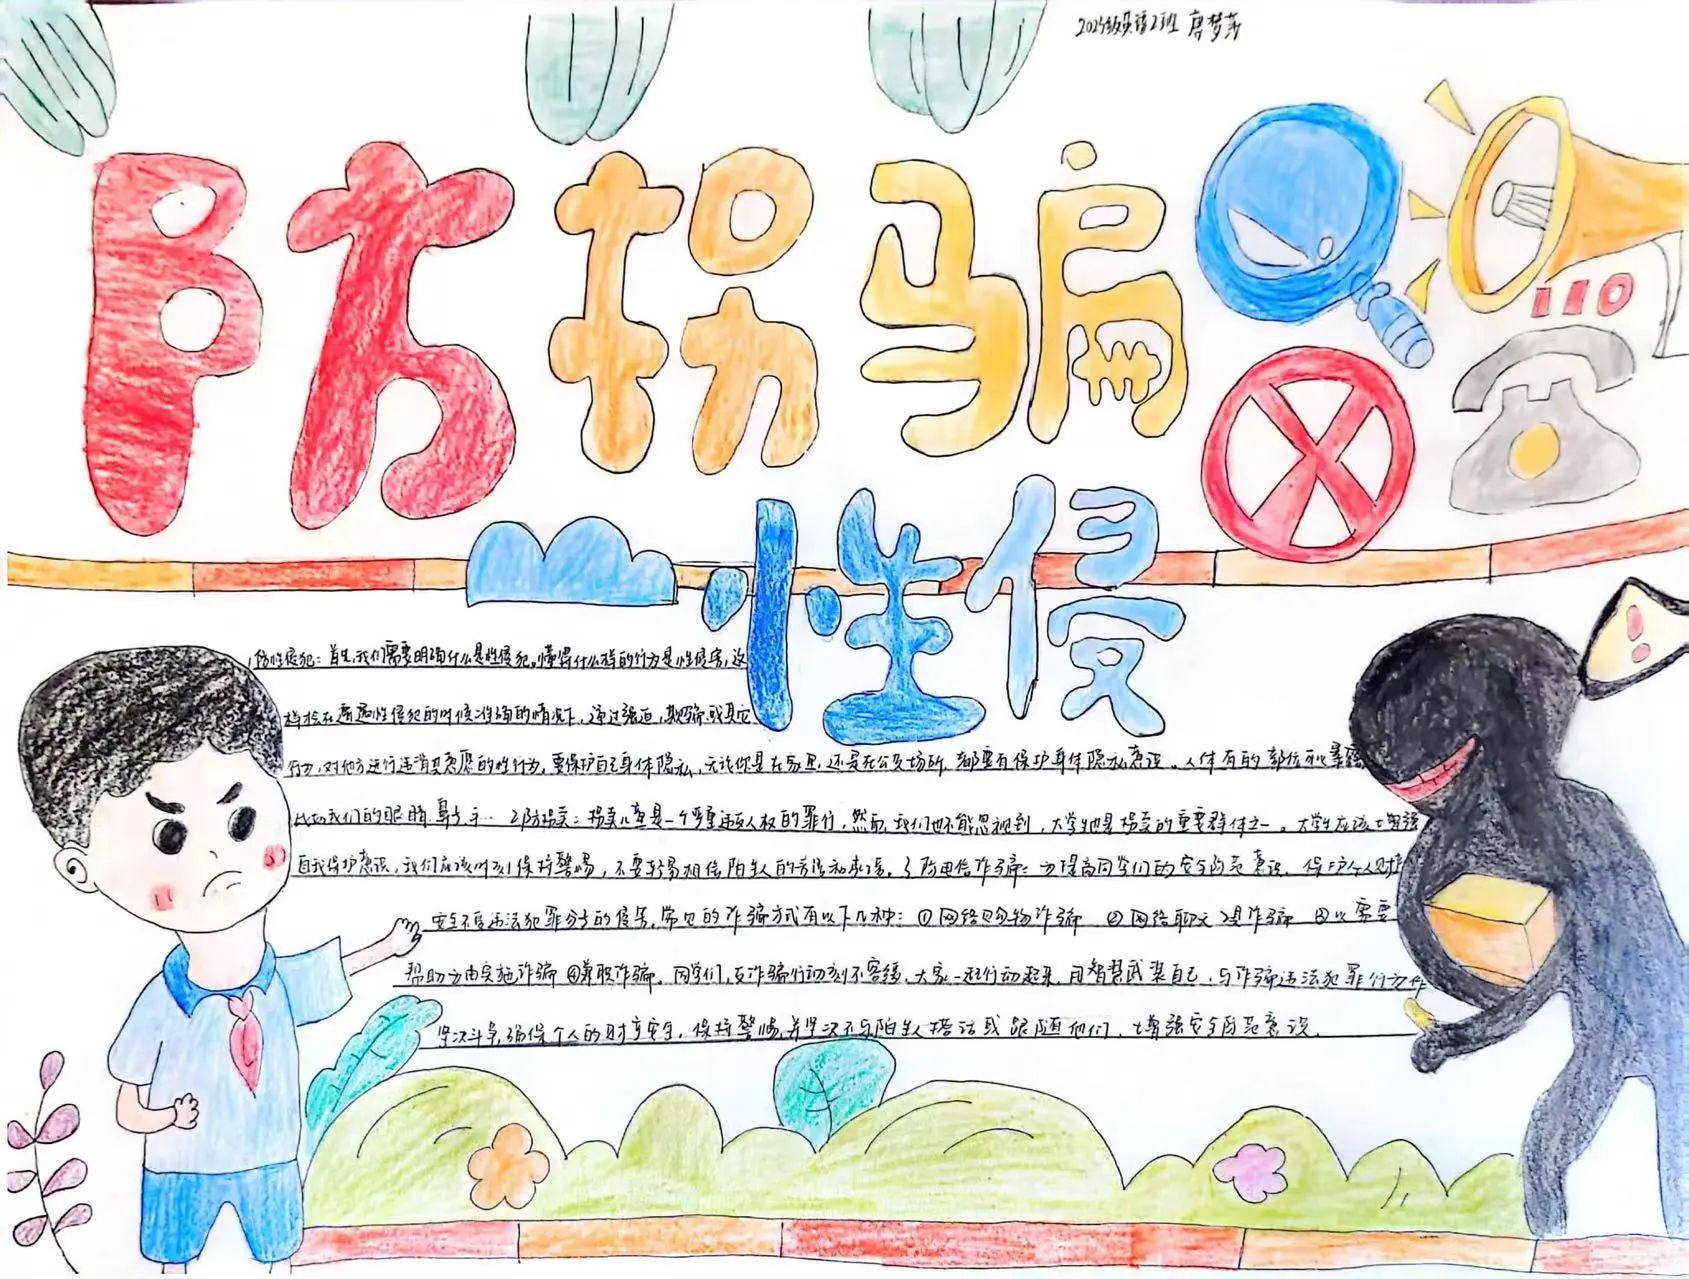 2024级英语2班 唐梦
防拐骗
性侵
1防性侵犯：首先，我们需要明确什么是性侵犯。懂得什么样的行为是性侵害，这
样会在遭遇性侵犯的时候准确的情况下，通过强迫，欺骗或其它
行为，对他方进行违背其意愿的性行为，要保护自己身体隐私，无论你是在家里，还是在公共场所，都要有保护身体隐私意识。人体有的部位可以暴露
比如我们的眼睛、鼻子、手… 2防拐卖：拐卖儿童是一个严重违反人权的罪行，然而，我们也不能忽视到，大学生也是拐卖的重要群体之一。大学生应该加强
自我保护意识，我们应该时刻保持警惕，不要轻易相信陌生人的方法和承诺。3防电信诈骗：为提高同学们的安全防范意识，保护个人财产
安全不受违法犯罪分子的侵害，常见的诈骗方式有以下几种：①网络购物诈骗 ②网络聊天 诈骗 ③以需要
帮助为由实施诈骗 ④兼职诈骗。同学们，反诈骗行动刻不容缓，大家一起行动起来，用智慧武装自己，与诈骗违法犯罪行为作
坚决斗争，确保个人的财产安全，保持警惕，并坚决不与陌生人搭话或跟随他们，增强安全防范意识。